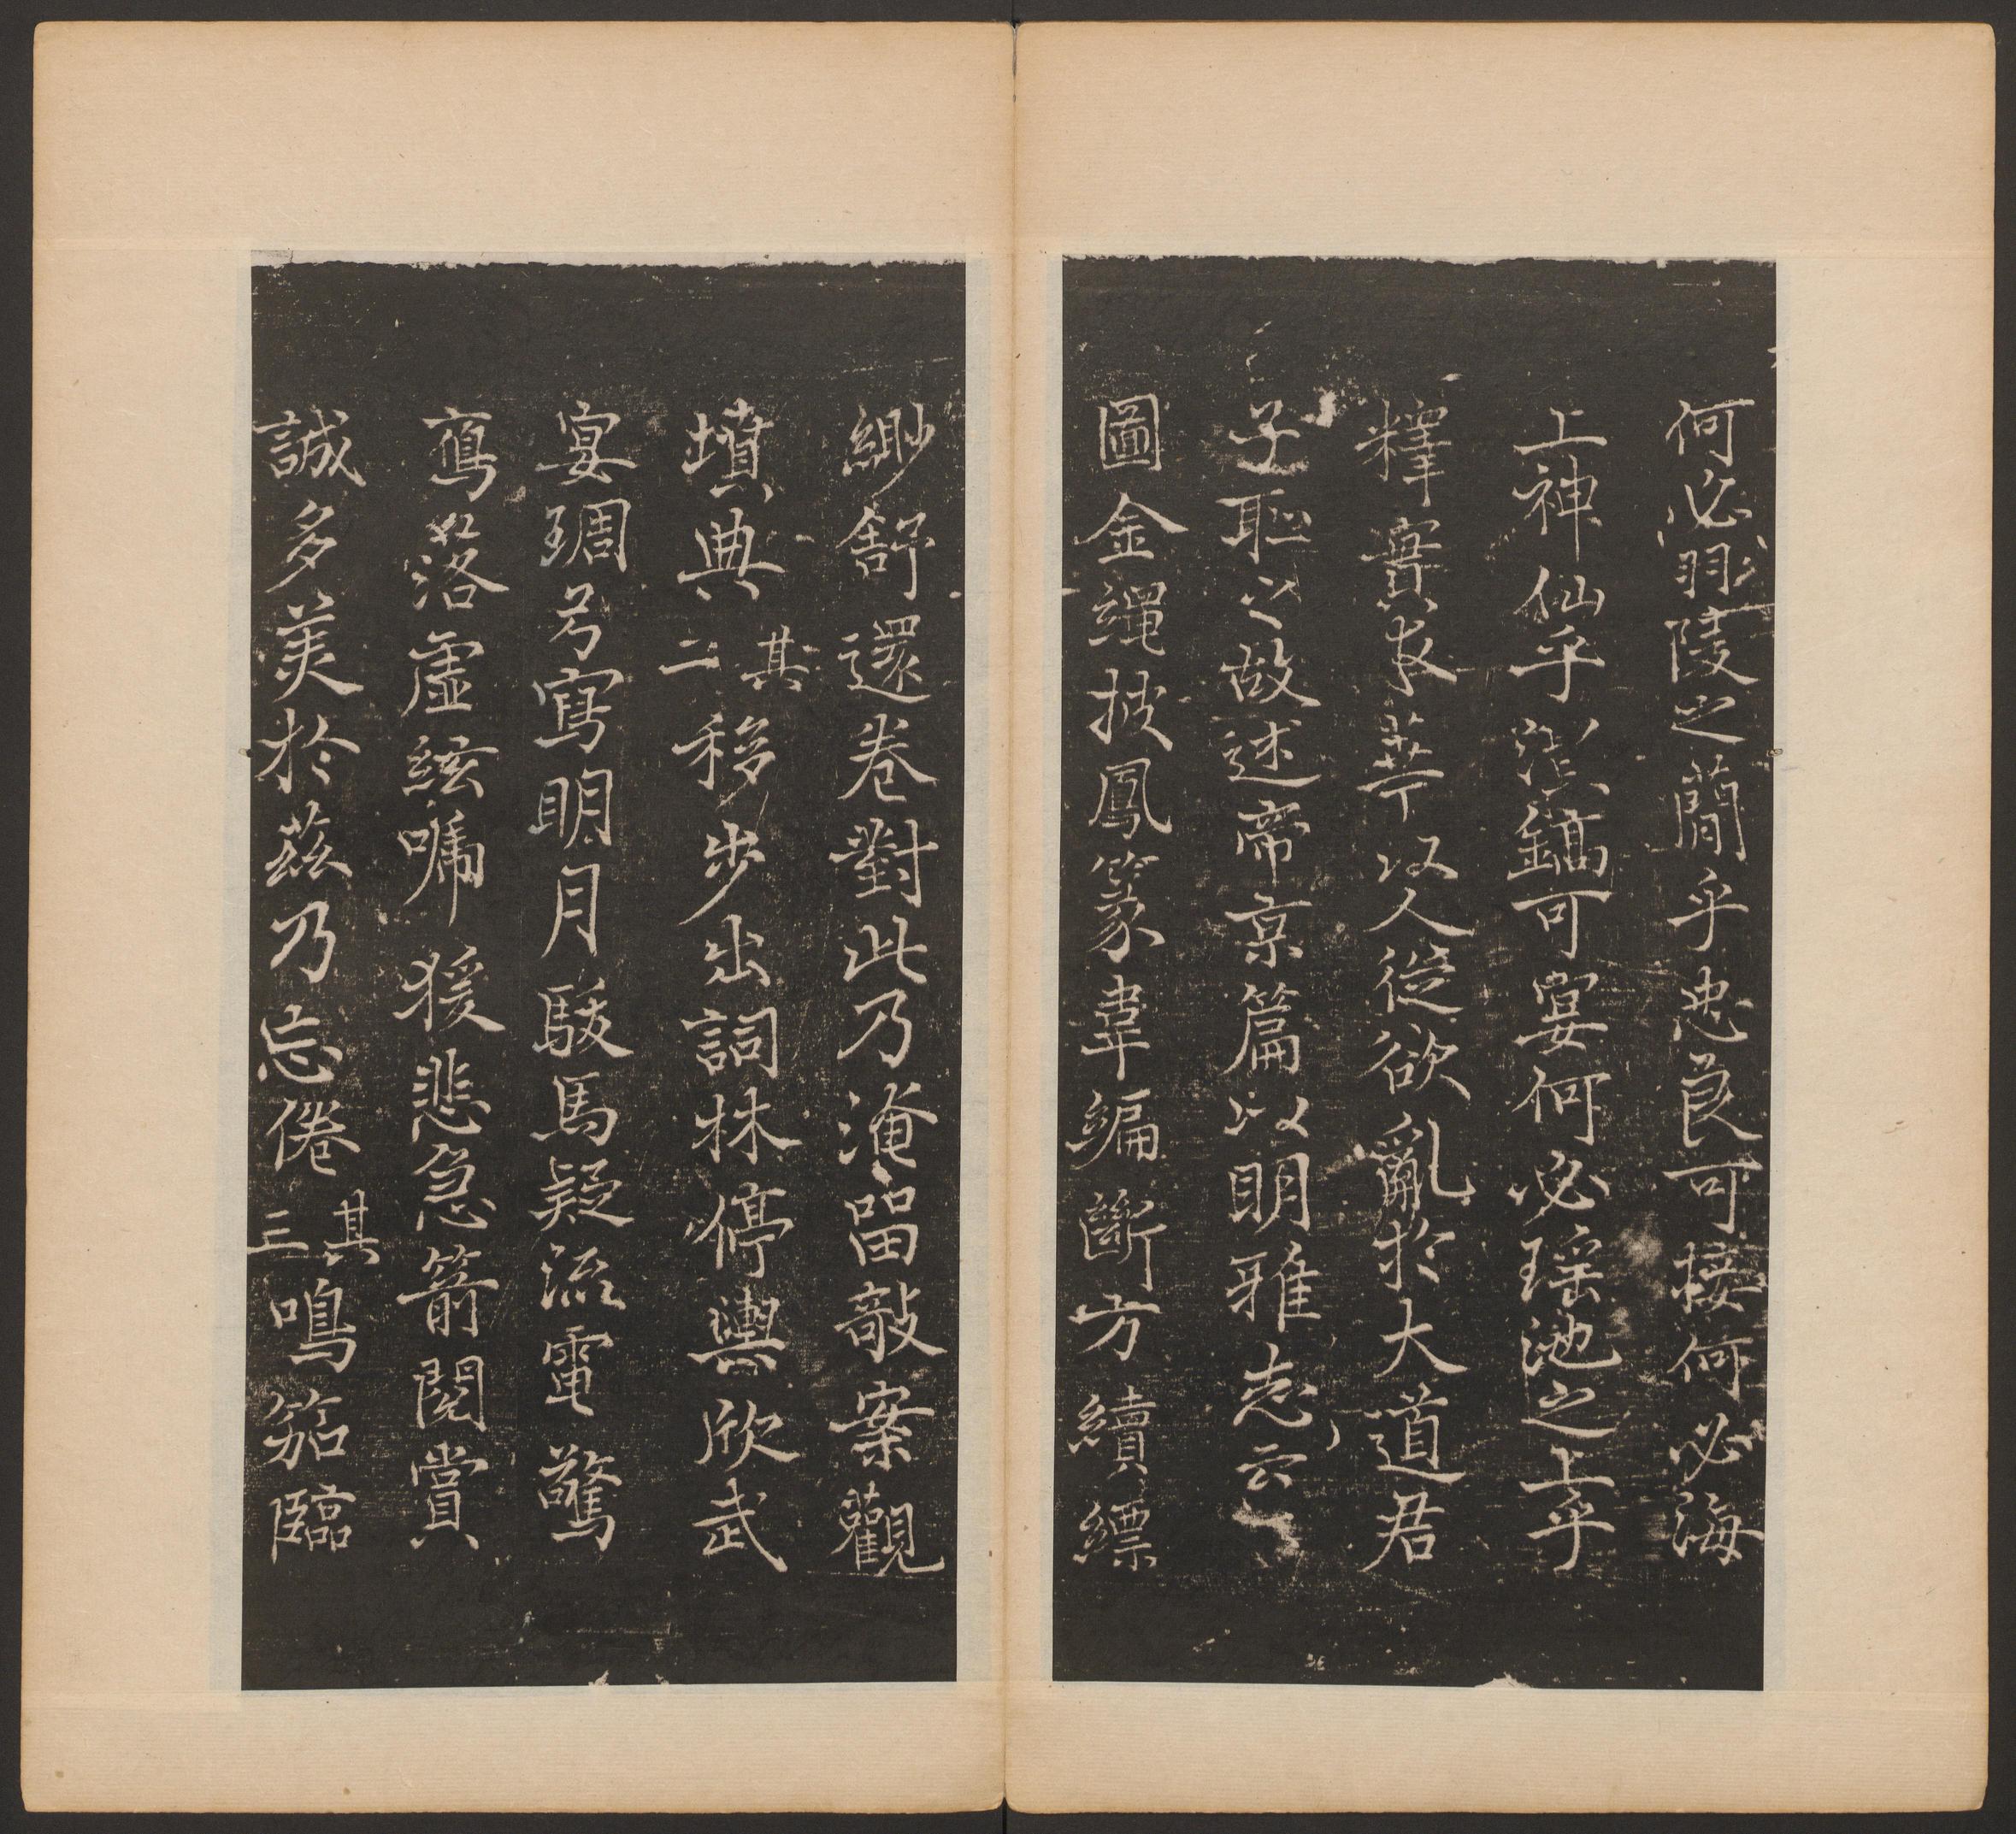 何必彤陵之蕳乎忠良可接何必海
上神仙乎灃鎬可宴何必瑶池之上乎
釋實求華以人從欲亂扵大道君
子耻之故述帝京篇以明雅志云
圖金繩披鳳篆韋編斷方續縹
緗舒還卷對此乃淹留敧案觀
墳典其二移步出詞林停輿欣武
宴琱弓寫明月駿馬疑流電驚
鴈落虛絃嘯猨悲急箭閱賞
誠多美扵茲乃忘倦其三鳴笳臨